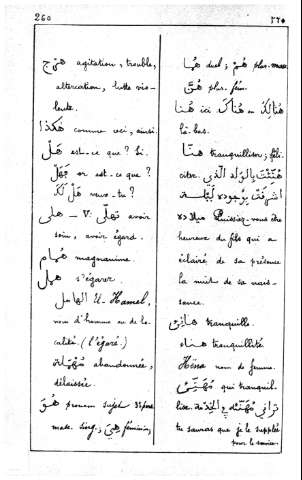 260
٢٦٠
هَرْج agitation, trouble,
altercation, lutte vio-
lente.
هَكَذَا comme ceci, ainsi.
هَلْ est-ce que? Si.
هَلْ or est-ce que?
هَلْ لَكَ veux-tu?
هلى — V. تهلّى avoir
soin, avoir égard.
هُمَام magnanime.
همل s'égarer.
الهامل El-Hamel,
nom d'homme ou de lo-
calité (l'égaré.)
مُهْمَلَة abandonnée,
délaissée.
هُوَ pronom sujet 3e pers.
masc. sing.; هِيَ féminin,
هُمَا duel; هُمْ plur. masc.
هُنَّ plur. fém.
هُنَا ici هُنَاكَ ou هُنَالِكَ
là-bas.
هَنَّا tranquilliser, féli-
citer. هُنِّئْتَ بِالْوَلَدِ الَّذِي
اشرقت بوجوده ليلة
ميلاده Puissiez-vous être
heureux du fils qui a
éclairé de sa présence
la nuit de sa nais-
sance.
هَانِئ tranquille.
هناء tranquillité
Hêna nom de femme.
مُهَنِّئ qui tranquil-
lise.
tu sauras que je te supplée
pour le service.